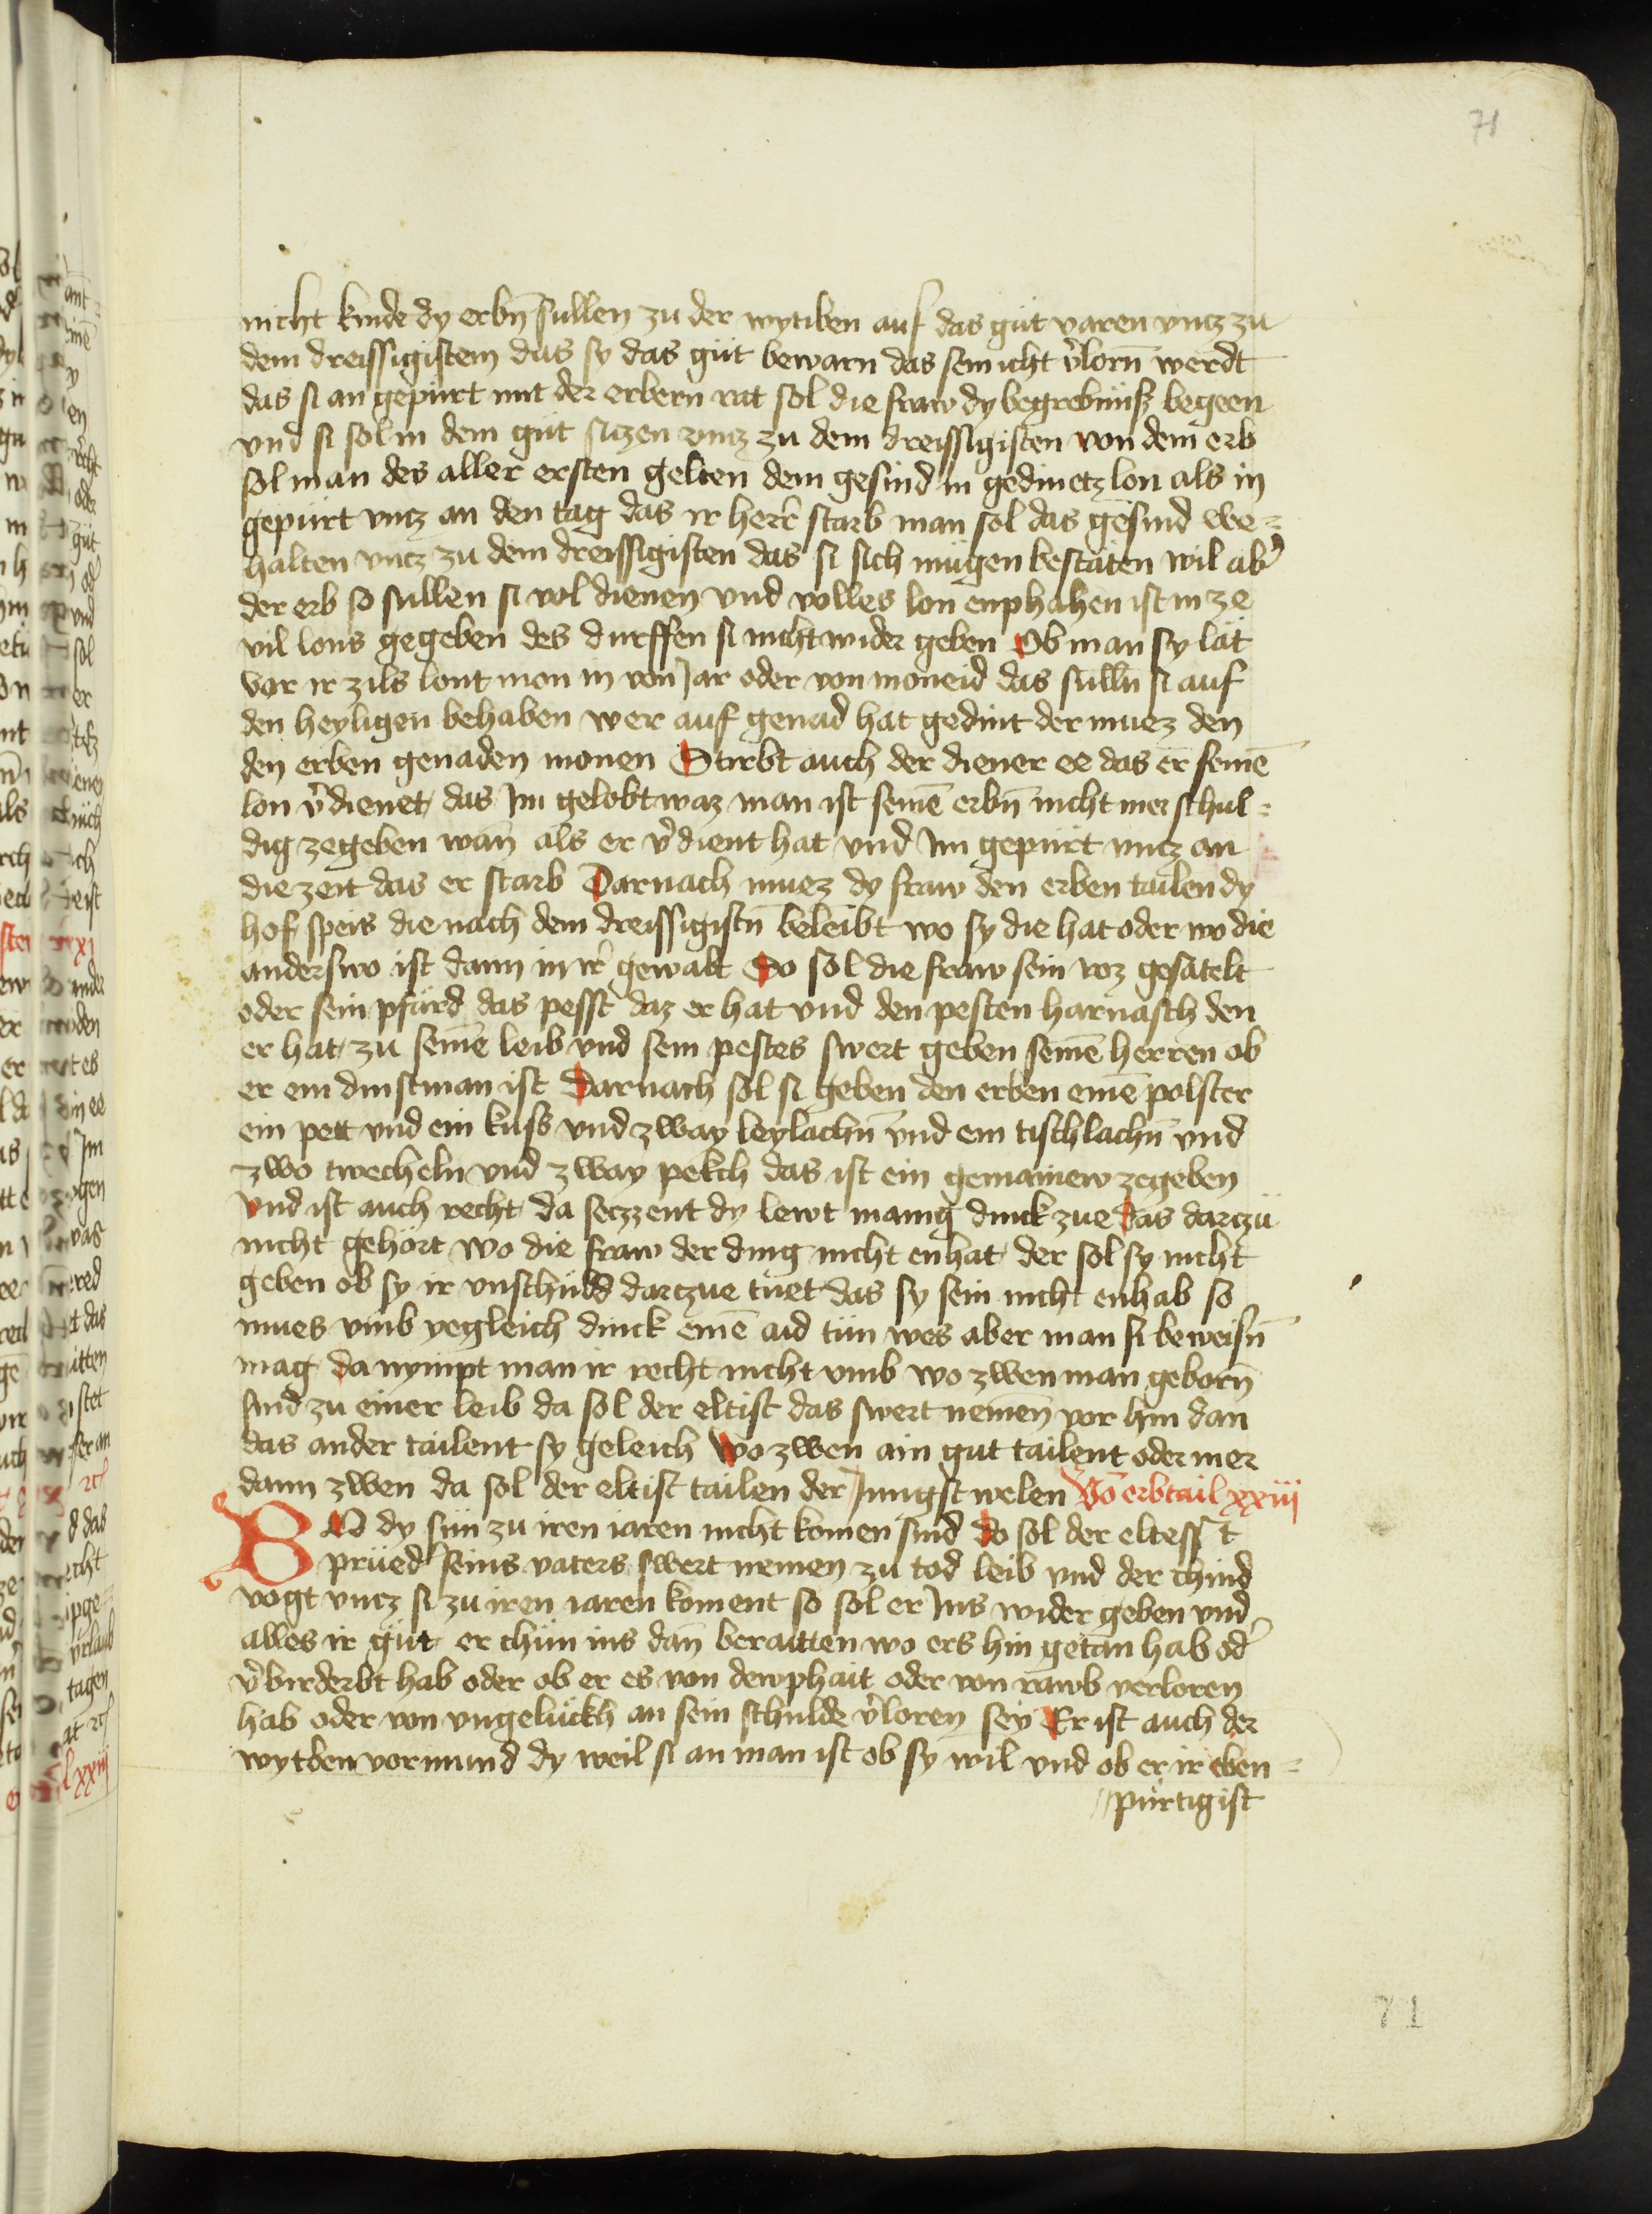 71
nicht kinde dy erbn̄ sullen zu der wytiben auf das güt varen vncz zu
dem dreissigistem das sy das güt bewarn das sein icht v̉lorn̄ werdt
das si an gepürt mit der erbern rat sol die fraw dy begrebnüß begeen
vnd si sol in dem güt siczen vncz zu dem dreissigisten von dem erb
sol man des aller ersten gelten dem gesind in gedinetz lon als in
gepürt vncz an den tag das ir herr̄ starb man sol das gesind we⸗
halten vncz zu dem dreissigisten das si sich mügen bestäten wil ab̉
der erb so sullen si vol dienen vnd volles lon enphahen ist in ze
vil lons gegeben des durffen si nicht wider geben Ob man sy lät
vor ir zils lont mon in von Jar oder von moneid das sulln̄ si auf
den heyligen behaben wer auf genad hat gedint der muez den
den erben genaden monen Stirbt auch der diener ee das er seinē
lon v̉dienet das Im gelobt waz man ist seinē erbn̄ nicht mer schul⸗
dig zegeben wan̄ als er v̉dient hat vnd Im gepürt vncz an
die zeit das er starb Darnach muez dy fraw den erben tailen dy
hof speis die nach dem dreissigistn̄ beleibt wo sy die hat oder wo die
anderswo ist dann in ir̉ gewalt So sol die fraw sein roz gesätelt
oder sein pfärd das pesst daz er hat vnd den pesten harnasch den
er hat zu seinē leib vnd sein pestes swert geben seinē herren ob
er ein dinstman ist Darnach sol si geben den erben einē polster
ein pett vnd ein küss vnd zway leylachn̄ vnd ein tischlachn̄ vnd
zwo twecheln vnd zway pekch das ist ein gemainew zegeben
vnd ist auch recht da seczzent dy lewt manig dinck zue Das darczü
nicht gehört wo die fraw der ding nicht enhat der sol sy nicht
geben ob sy ir vnschuldd darczue tüet das sy sein nicht enhab so
mues vmb yegleich dinck einē aid tün wes aber man si beweisn̄
mag da nympt man ir recht nicht vmb wo zwen man geborn̄
sind zu einer leib da sol der eltist das swert nemen̄ vor hin dan
das ander tailent sy geleich Wo zwen ain gut tailent oder mer
dann zwen da sol der eltist tailen der Jungst welen Vō erbtail xxiij
WO dy sün zu iren iaren nicht komen sind do sol der eltesst
prüed̉ seins vaters swert nemen zu tod leib vnd der chind
vogt vncz si zu iren iaren koment so sol er Ins wider geben vnd
alles ir güt er chün ins dan̄ beraitten wo ers hin getan hab od̉
v̉birderbt hab oder ob er es von dewphait oder von rawb verloren
hab oder von vngelückh an sein schulde v̉loren sey Er ist auch der
wytben vormund dy weil si an man ist ob sy wil vnd ob er ir eben⸗
pürtig ist
71